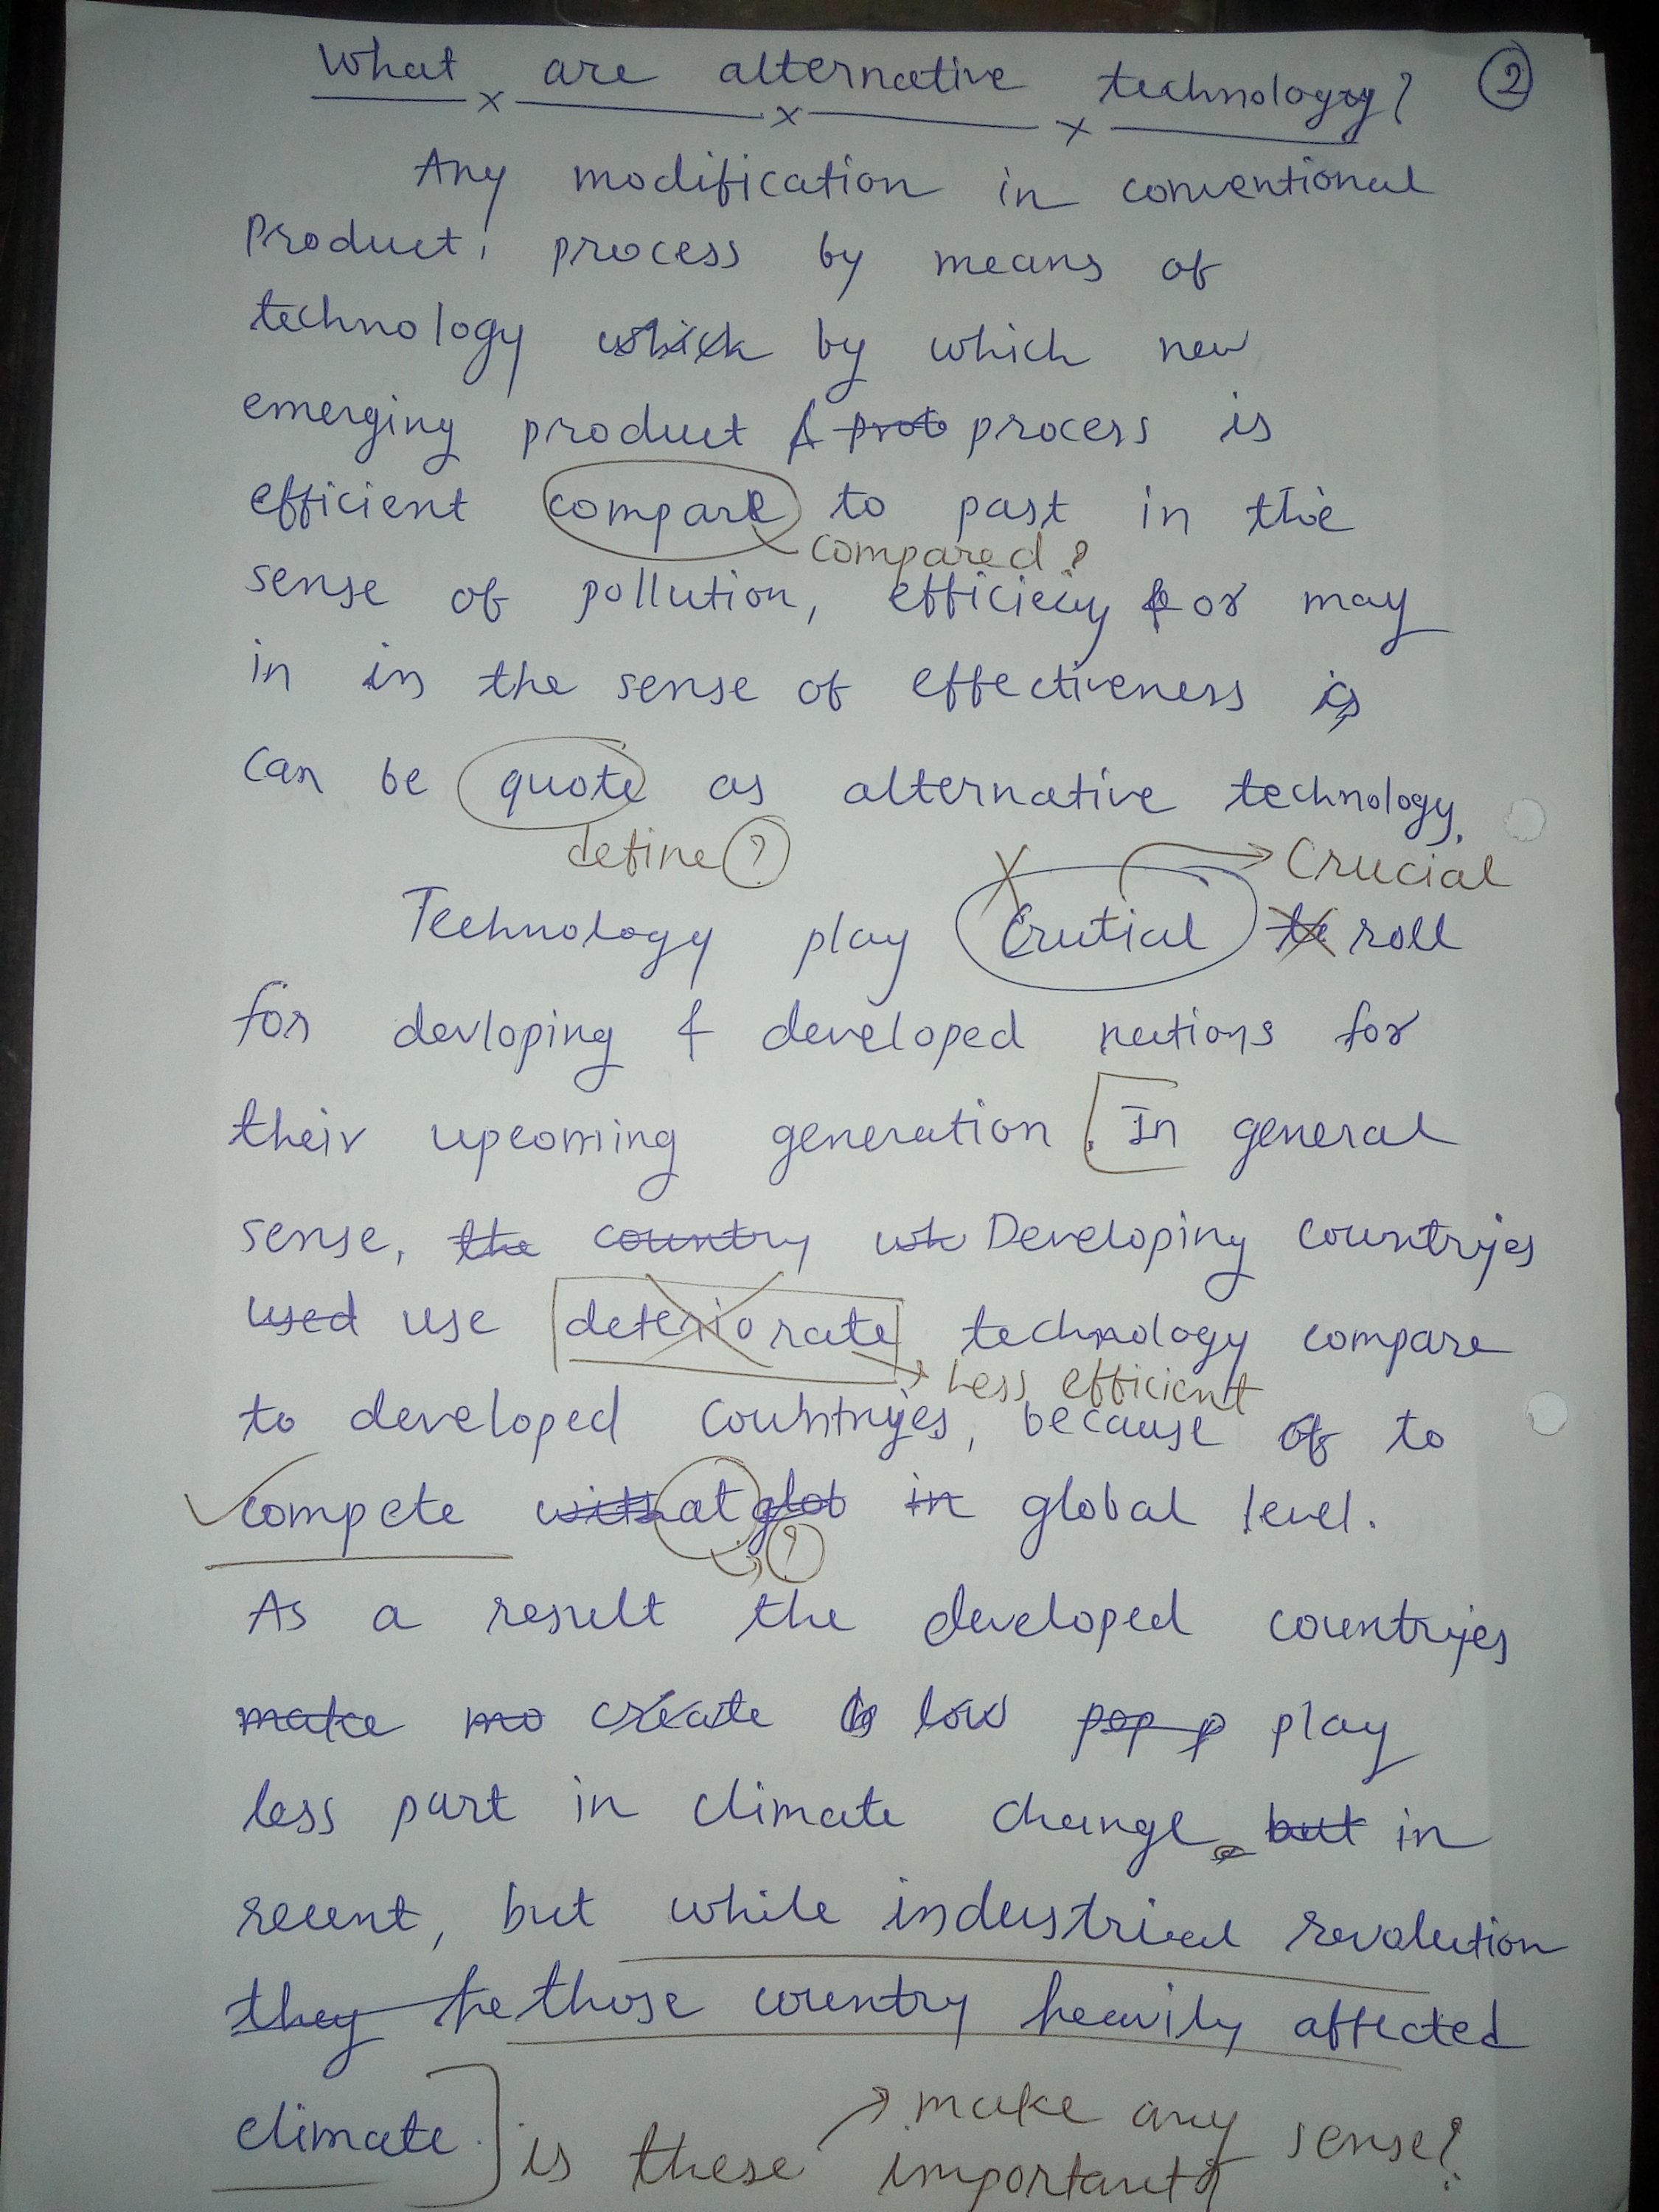 What are alternative technology? ②
Any modification in conventional
Product, process by means of
technology which by which new
emerging product & prob process is
efficient compare to past in the
compared?
sense of pollution, efficiecy & or may
in in the sense of effectiveness is
can be quote as alternative technology.
define ?
Crucial
Technology play Crutial te roll
for devloping & developed nations for
their upcoming generation. In general
sense, the country wh Developing countryies
used use deteriorate technology compare
Less efficient
to developed countryies, because of to
compete with at glob in global level.
?
As a result the developed countryies
make mo create low pop p play
less part in climate change but in
recent, but while industrial revolution
they he those country heavily affected
climate. is these make any sense?
important?